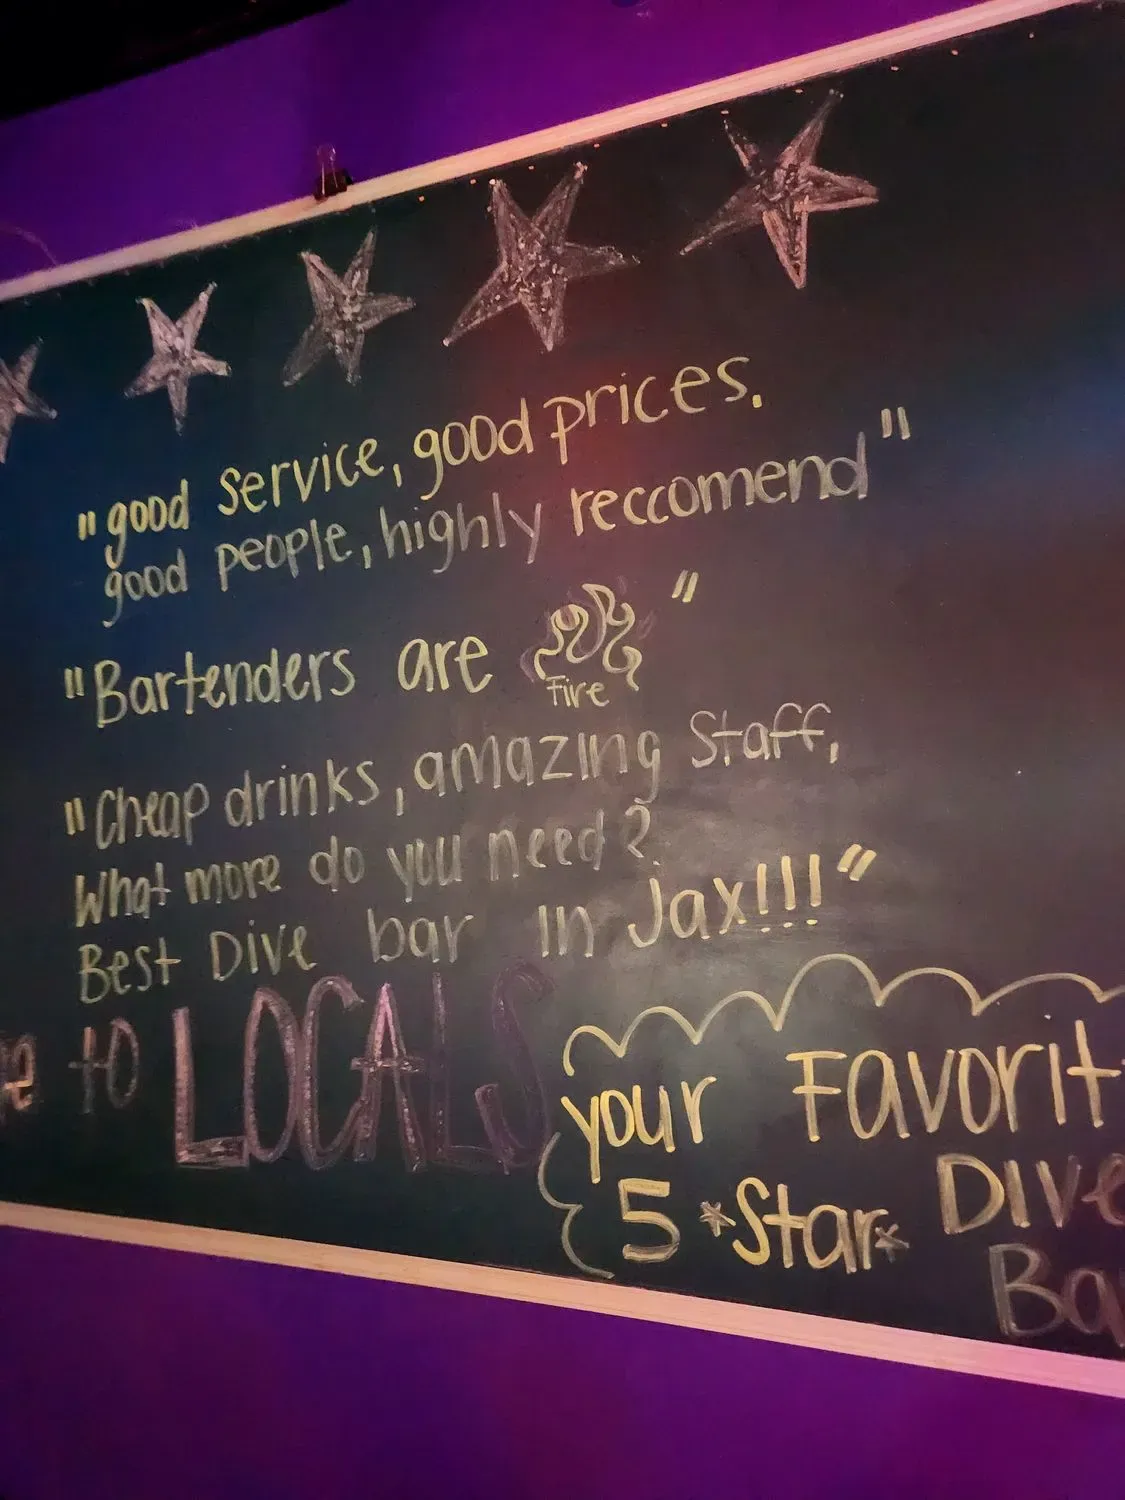 "good service, good prices.
good people, highly reccomend"
"Bartenders are
Fire"
"Cheap drinks, amazing Staff,
What more do you need?
Best Dive bar in Jax!!!"
to LOCALS
your Favorit
5 *Star* Dive
Ba